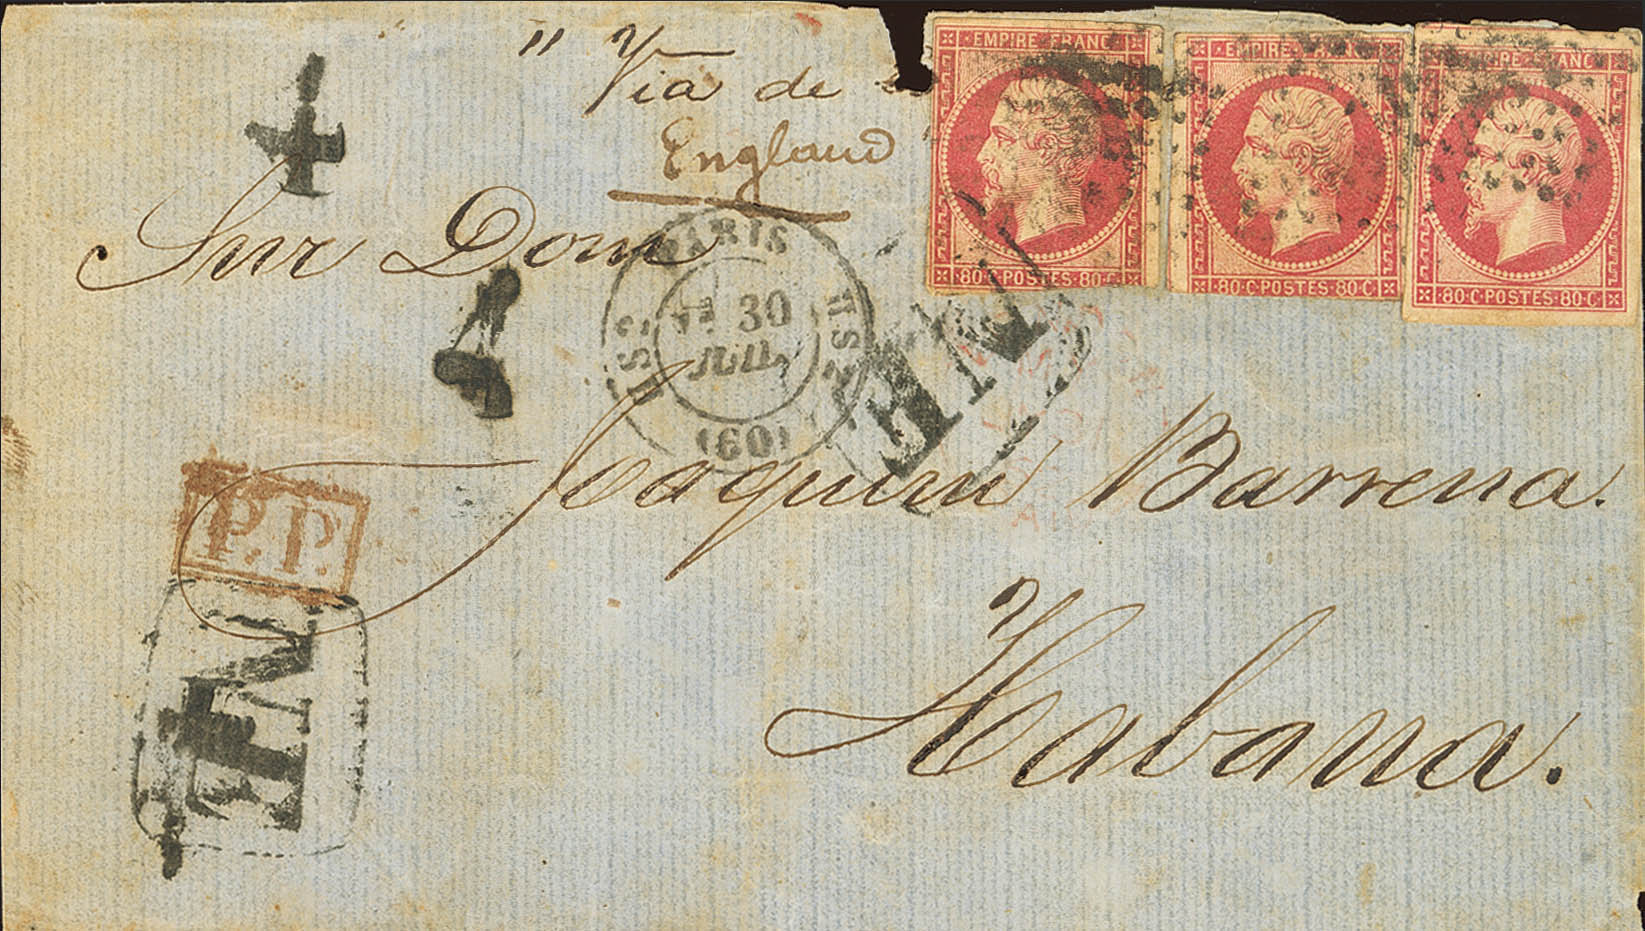 " Via de
England
EMPIRE FRANC
80·C·POSTES·80·C
EMPIRE FRANC
80·C·POSTES·80·C
EMPIRE FRANC
80·C·POSTES·80·C
Snr Dom
PARIS
30
JUIL
(60)
Joaquin Barrena.
P.P.
Habana.